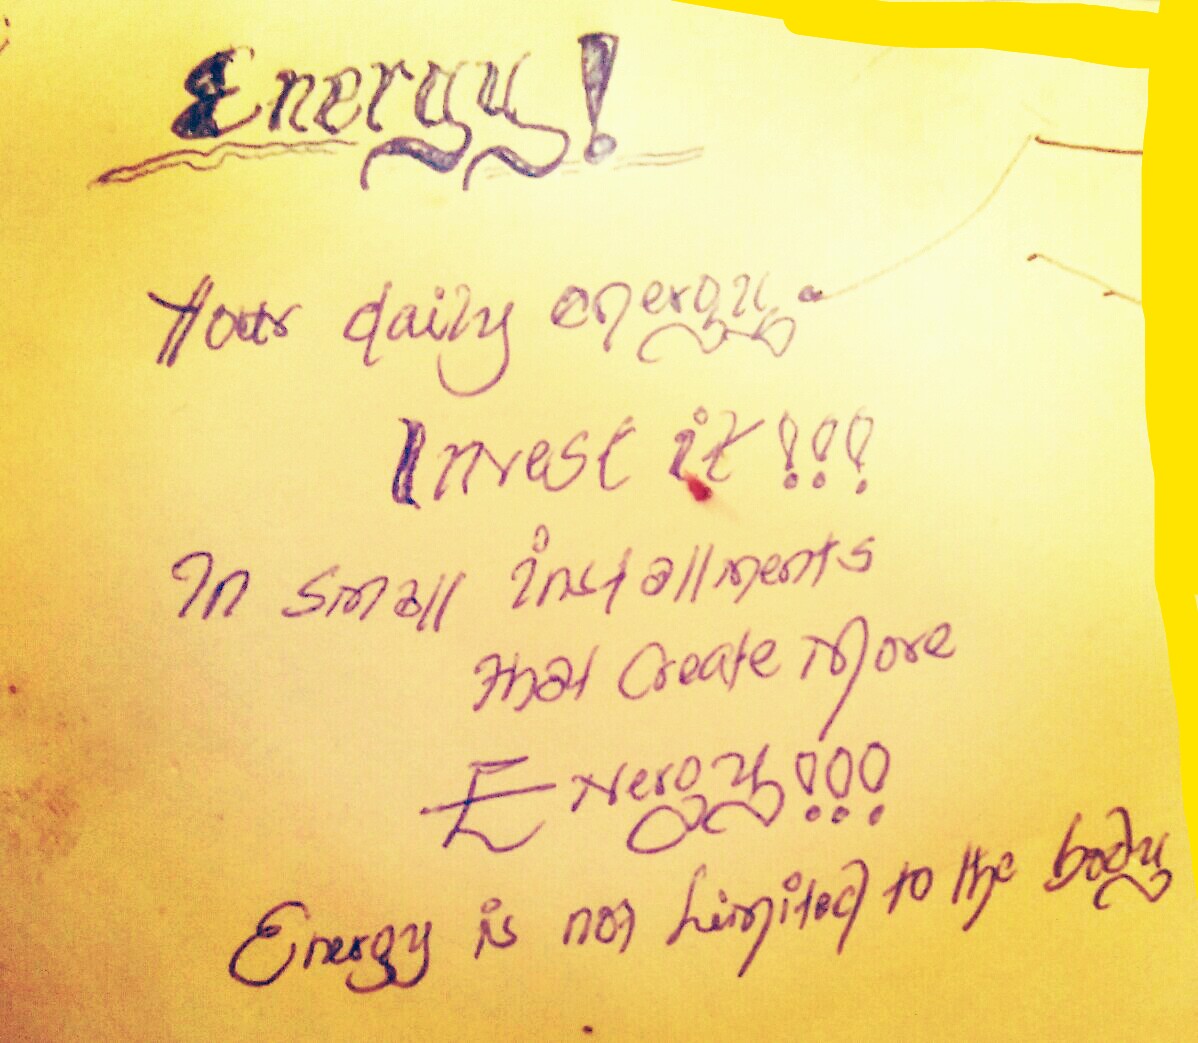 Energy!
Your daily energy.
Invest it!!!
In small installments
that create more
Energy!!!
Energy is not limited to the body